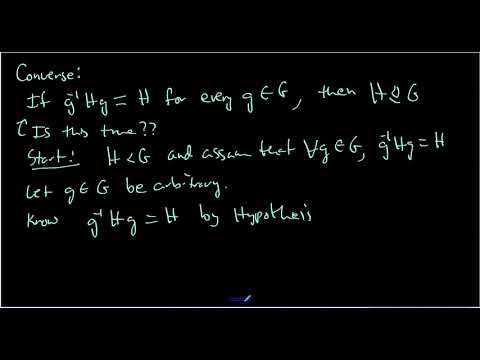 Converse:
If g⁻¹Hg = H for every g ∈ G, then H ⊴ G
↑ Is this true??
Start! H < G and assum that ∀g ∈ G, g⁻¹Hg = H
Let g ∈ G be arbitrary.
Know g⁻¹Hg = H by Hypothesis